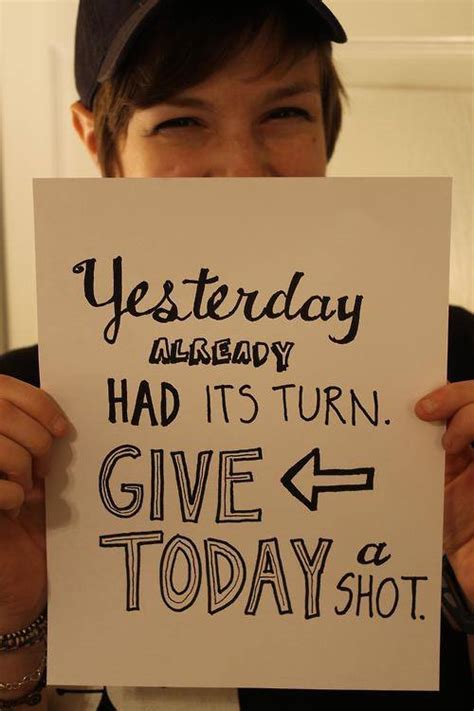 Yesterday
ALREADY
HAD ITS TURN.
GIVE
TODAY a SHOT.